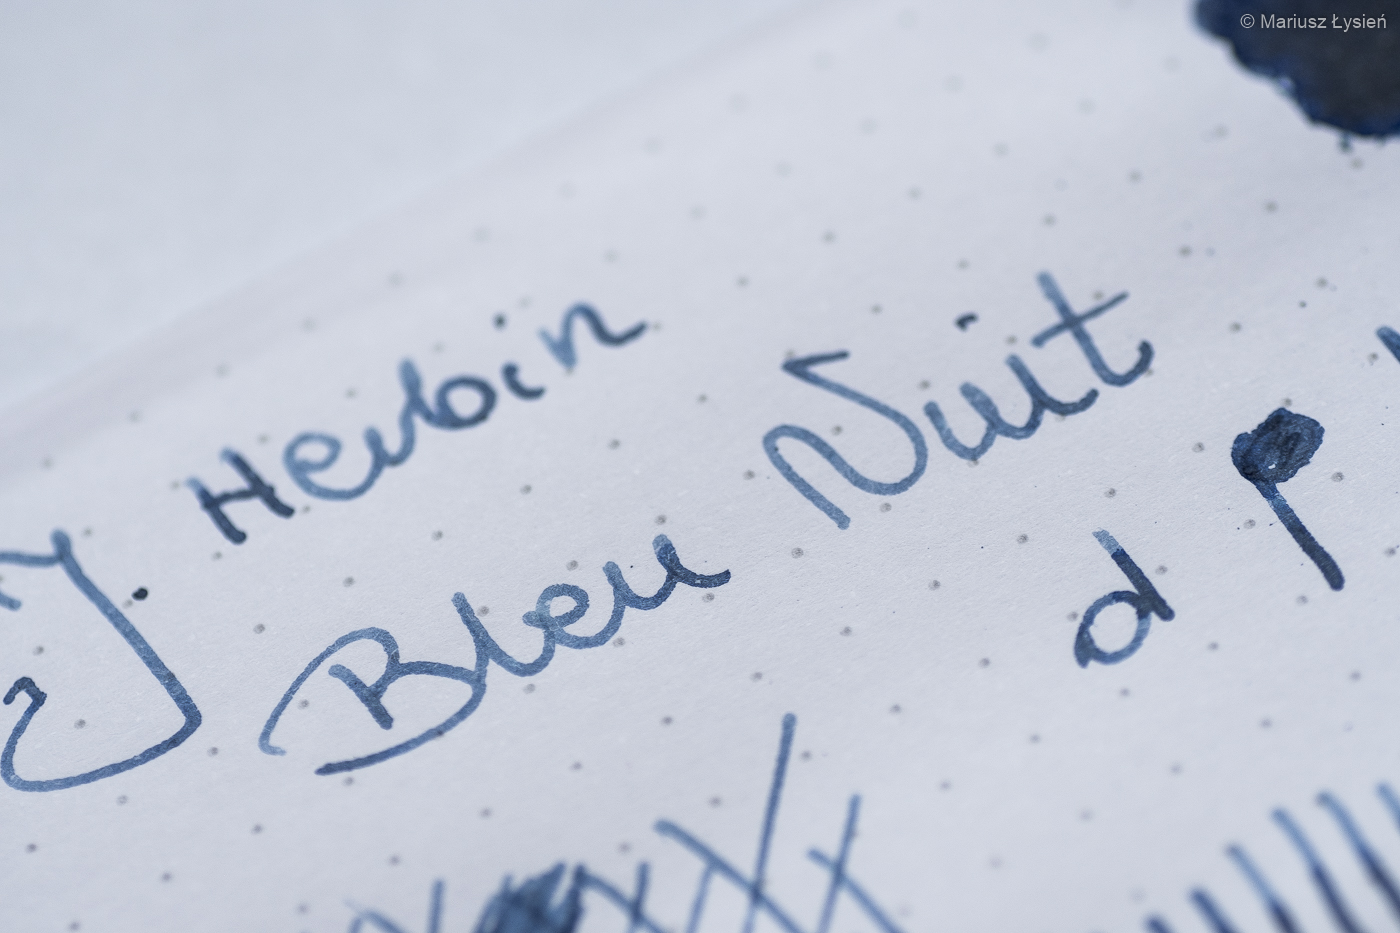 © Mariusz Łysień
J. Herbin
Bleu Nuit
d